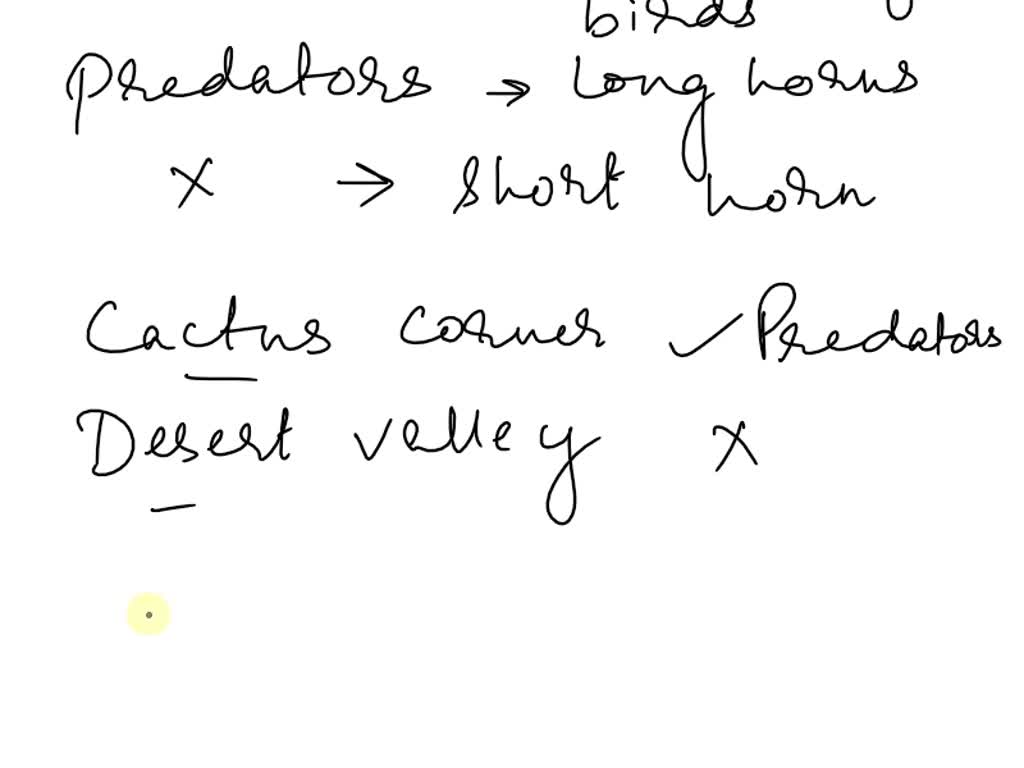 birds
Predators → Long horns
X → Short horn
Cactus corner ✓ Predators
Desert valley X